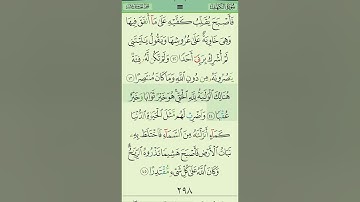 سُورَةُ الكَهْفِ
فَأَصْبَحَ يُقَلِّبُ كَفَّيْهِ عَلَىٰ مَآ أَنفَقَ فِيهَا
وَهِيَ خَاوِيَةٌ عَلَىٰ عُرُوشِهَا وَيَقُولُ يَٰلَيْتَنِي
لَمْ أُشْرِكْ بِرَبِّيٓ أَحَدًا وَلَمْ تَكُن لَّهُۥ فِئَةٌ
يَنصُرُونَهُۥ مِن دُونِ ٱللَّهِ وَمَا كَانَ مُنتَصِرًا
هُنَالِكَ ٱلْوَلَٰيَةُ لِلَّهِ ٱلْحَقِّ هُوَ خَيْرٌ ثَوَابًا وَخَيْرٌ
عُقْبًا ٤٤ وَٱضْرِبْ لَهُم مَّثَلَ ٱلْحَيَوٰةِ ٱلدُّنْيَا
كَمَآءٍ أَنزَلْنَٰهُ مِنَ ٱلسَّمَآءِ فَٱخْتَلَطَ بِهِۦ
نَبَاتُ ٱلْأَرْضِ فَأَصْبَحَ هَشِيمًا تَذْرُوهُ ٱلرِّيَٰحُ
وَكَانَ ٱللَّهُ عَلَىٰ كُلِّ شَيْءٍ مُّقْتَدِرًا ٤٥
٢٩٨